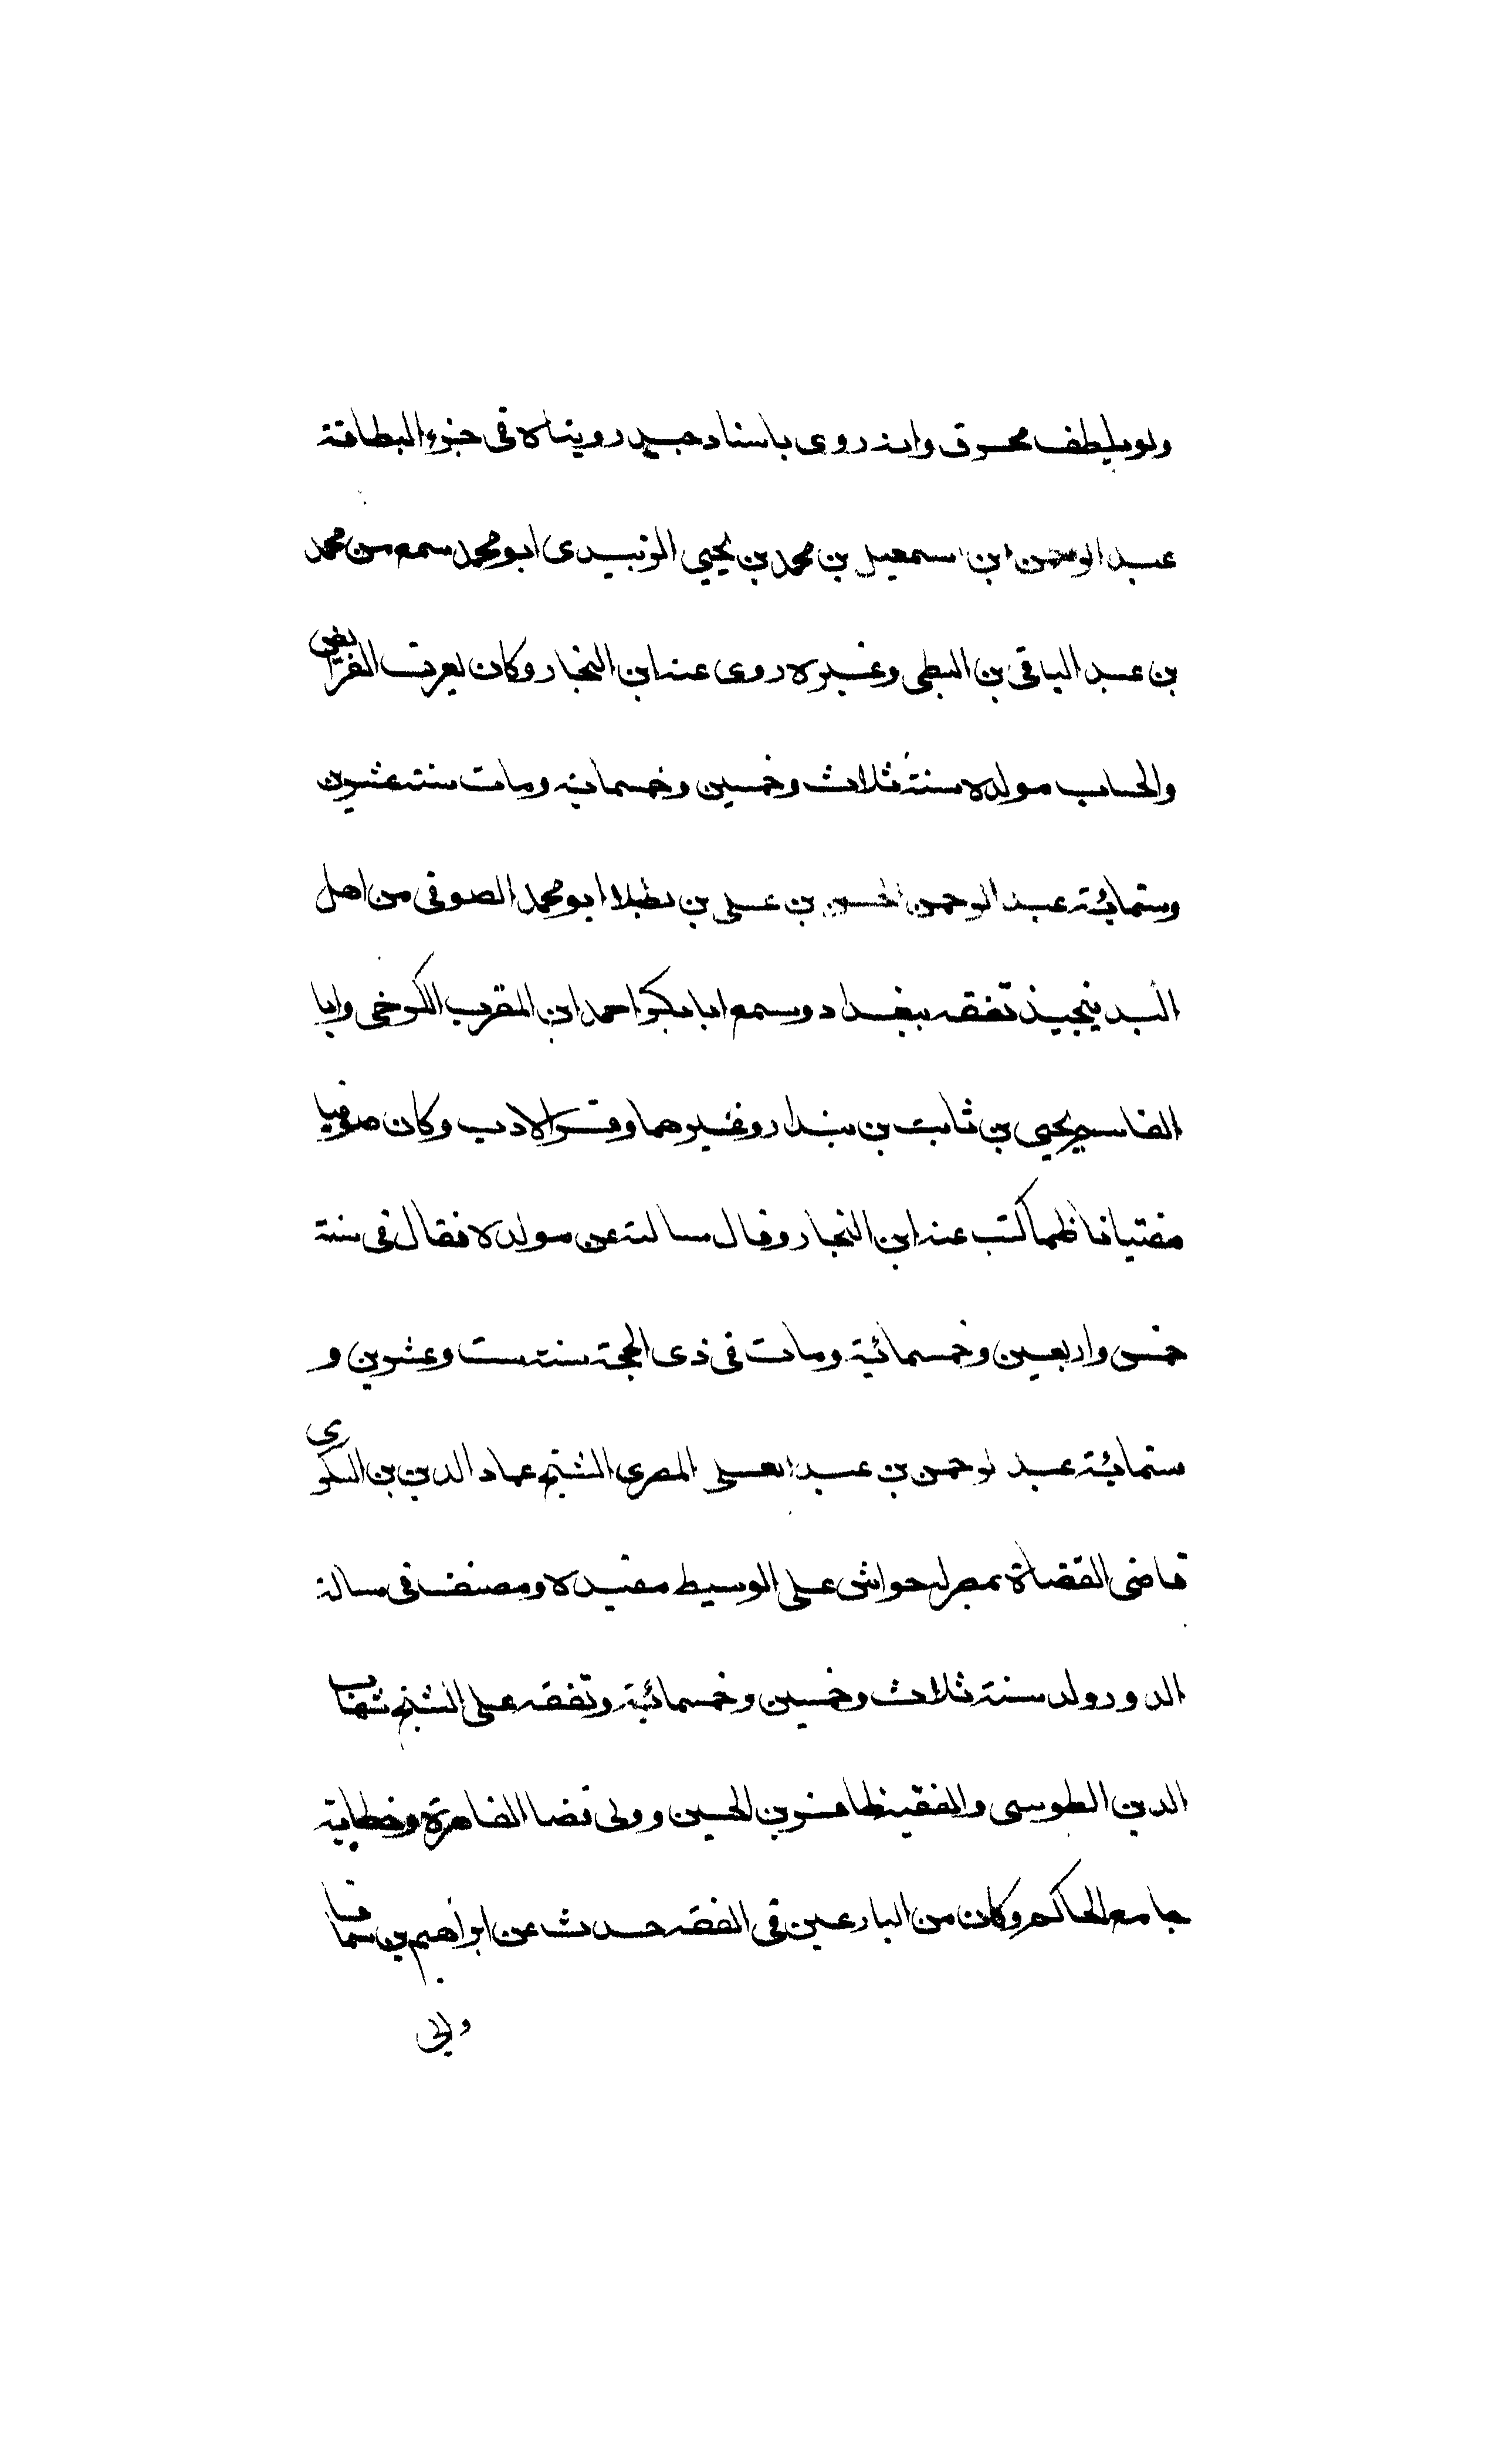 ولو بظلف محرق وانه روى باسناد جيد رويناه فى جزء البطاقة
عبد الرحمن ابن اسمعيل بن محمد بن يحيي الزبيدى ابو محمد سمع من محمد
بن عبد الباقى بن البطى وغيره روى عنه ابن النجار وكان يعرف الفرايض
والحساب مولده سنة ثلاث وخمسين وخمسماية ومات سنة عشرين
وستمائة عبد الرحمن الحسن بن على بن بطلا ابو محمد الصوفى من اهل
البدنيجين تفقه ببغداد وسمع ابا بكر احمد ابن المقرب الكرخى وابا
القاسم يحيى بن ثابت بن بندار وغيرهما وقرا الادب وكان صوفيا
مفتيا فاظما كتب عنه ابن النجار وقال سالته عن مولده فقال فى سنة
خمس واربعين وخمسمائية ومات فى ذى الحجة سنة ست وعشرين و
ستمائة عبد لرحمن بن عبد العلى المصرى الشيخ عماد الدين بن السكرى
قاضى القضاة بمصر له حواشى على الوسيط مفيده ومصنف فى مسالة
الدور ولد سنة ثلاث وخمسين وخمسمائية وتفقه على الشيخ شهاب
الدين الطوسى والفقيه ظافر بن الحسين وولى قضا القاهرة وخطابة
جامع الحاكم وكان من البارعين فى الفقه حدث عن ابراهيم بن سماقا